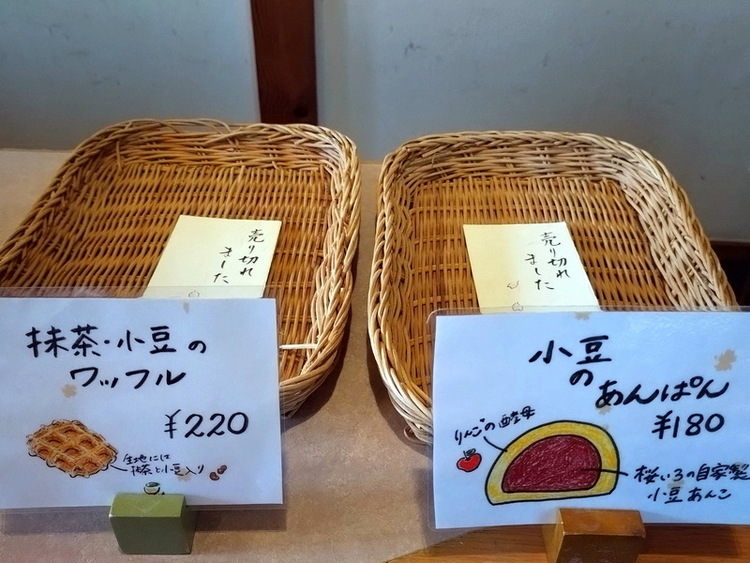 売り切れ
ました
抹茶・小豆の
ワッフル
¥220
生地には
抹茶と小豆入り
売り切れ
ました
小豆
の
あんぱん
¥180
りんごの酵母
桜いろの自家製
小豆あんこ